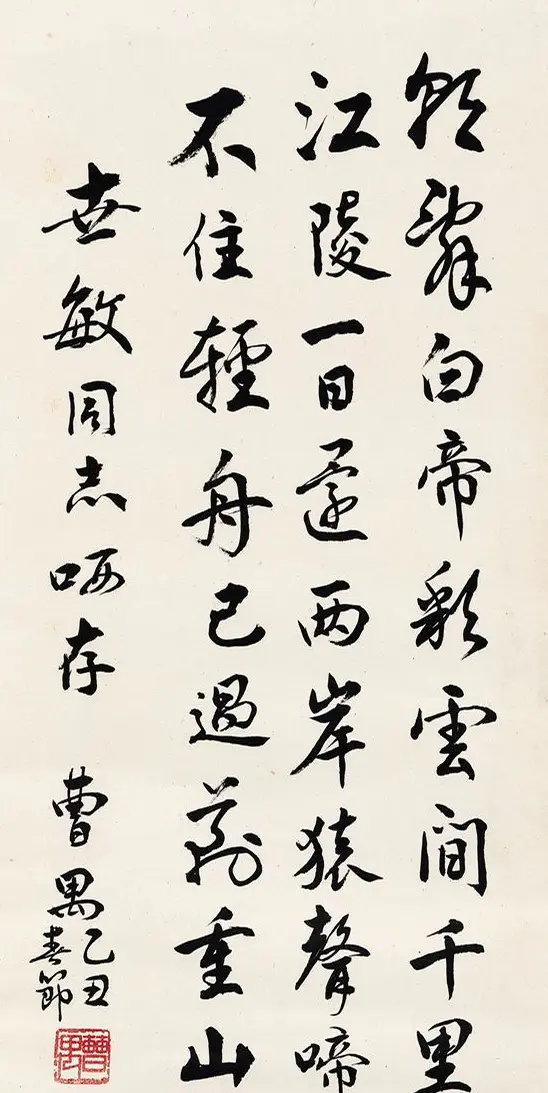 朝辭白帝彩雲間千里
江陵一日還两岸猿聲啼
不住輕舟已過萬重山
世敏同志哂存
曹禺乙丑
春節
曹禺